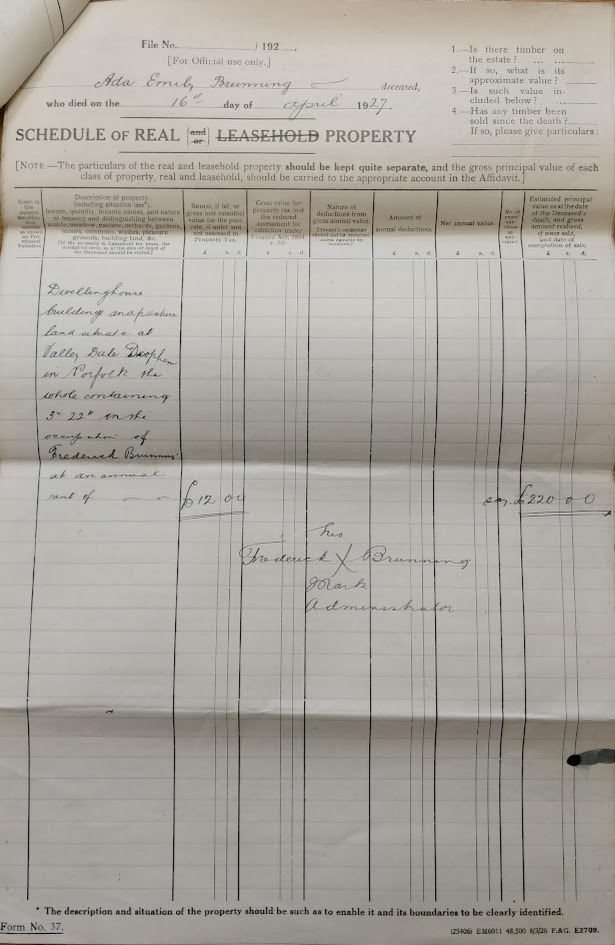 File No. /192
[For Official use only.]
Ada Emily Brunning deceased,
who died on the 16th day of April 1927.
SCHEDULE OF REAL [and/or] LEASEHOLD PROPERTY
1.—Is there timber on
the estate? ... ...
2.—If so, what is its
approximate value? ...
3.—Is such value in-
cluded below? ...
4.—Has any timber been
sold since the death?
If so, please give particulars:
[NOTE—The particulars of the real and leasehold property should be kept quite separate, and the gross principal value of each
class of property, real and leasehold, should be carried to the appropriate account in the Affidavit.]
Description of property,
including situation (see*),
tenure, quantity, tenants names, and nature
of tenancy and distinguishing between
arable, meadow, pasture, orchards, gardens,
woods, commons, wastes, pleasure
grounds, building land, &c.
Rental, if let, or
gross (not rateable)
value for the poor
rate, if unlet and
not assessed to
Property Tax.
£ s. d.
Gross value for
property tax (not
the reduced
assessment for
collection under
Finance Act, 1894
£ s. d.
Nature of
deductions from
gross annual value.
Amount of
annual deductions.
£ s. d.
Net annual value.
£ s. d.
No. of
years
Estimated principal
value as at the date
of the Deceased's
death, and gross
amount realised,
if since sold,
and date of
completion of sale.
£ s. d.
Dwellinghouse
buildings and pasture
land situate at
Valley Dale Deopham
in Norfolk the
whole containing
3r 22p in the
occupation of
Frederick Brunning
at an annual
rent of £12 0 0 say £220 0 0
his
Frederick X Brunning
Mark
Administrator
* The description and situation of the property should be such as to enable it and its boundaries to be clearly identified.
Form No. 37.
(25406) EM6011 48,500 8/3/26 P.&G. E2709.